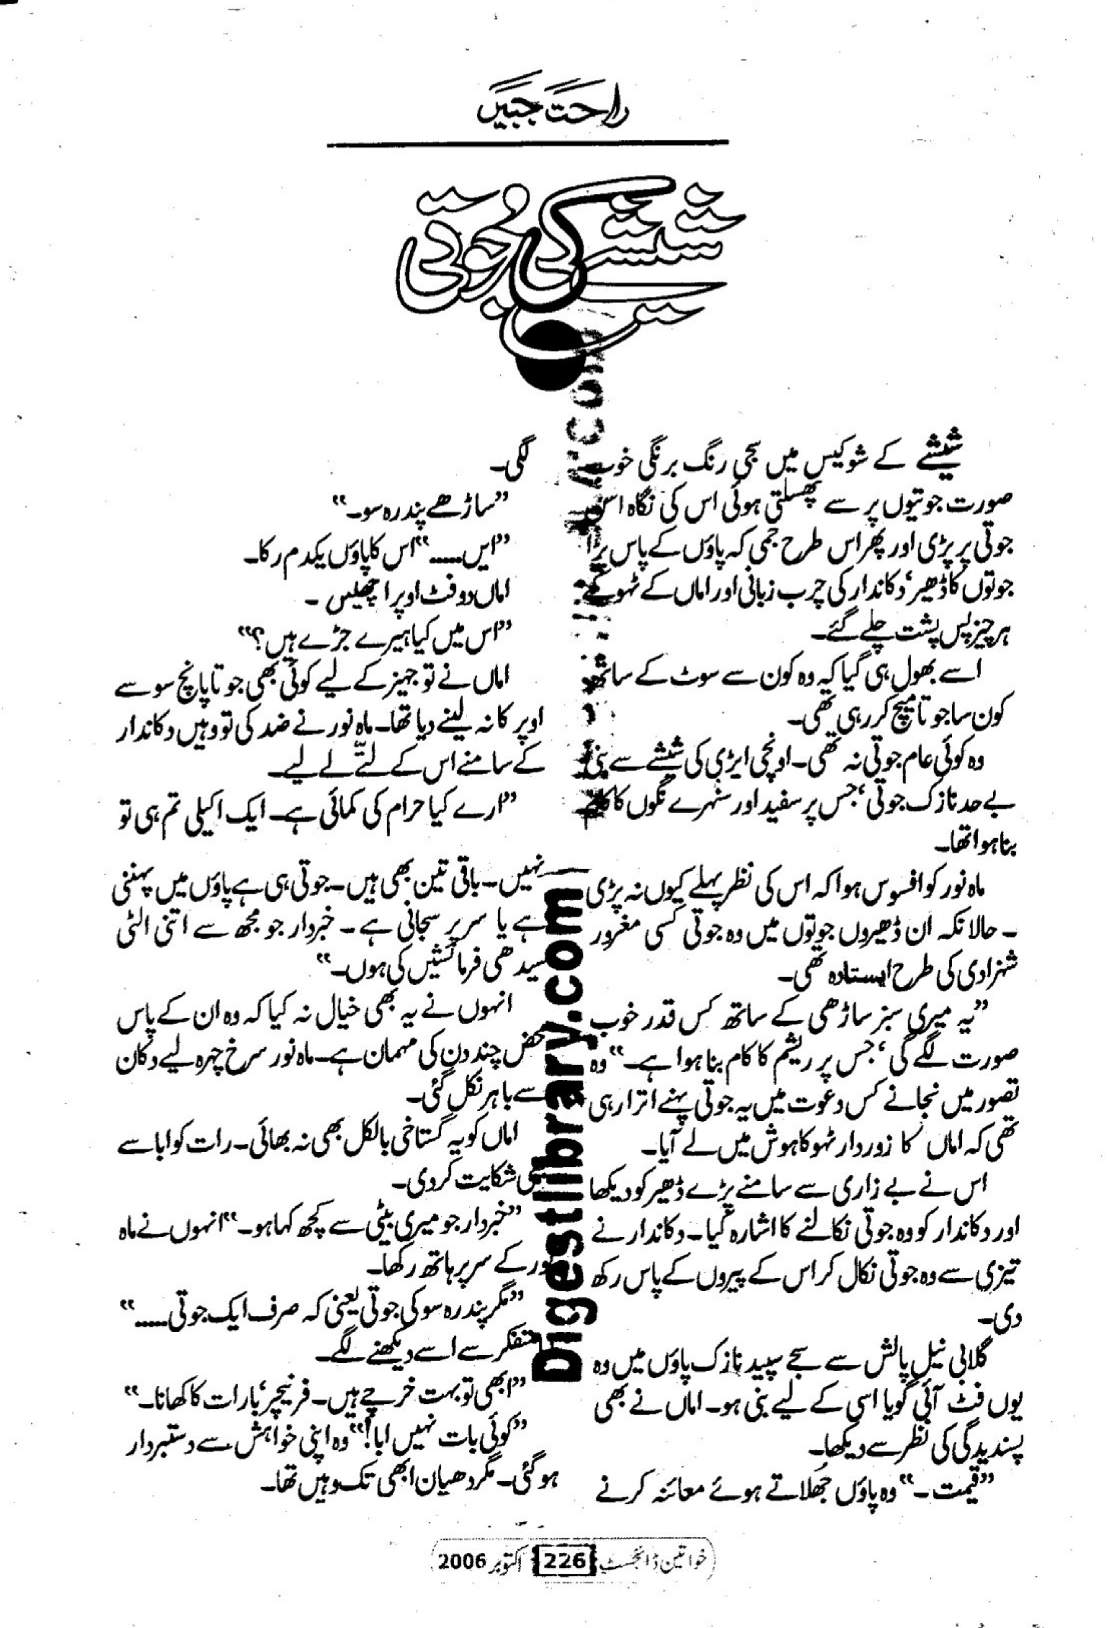 راحت جبیں
شیشے کی جوتی
شیشے کے شوکیس میں سجی رنگ برنگی خوب
صورت جوتیوں پر سے پھسلتی ہوئی اس کی نگاہ اس
جوتی پر پڑی اور پھر اس طرح جمی کہ پاؤں کے پاس پڑا
جوتوں کا ڈھیر، دکاندار کی چرب زبانی اور اماں کے ٹھوکے
ہر چیز پس پشت چلے گئے۔
اسے بھول ہی گیا کہ وہ کون سے سوٹ کے ساتھ
کون سا جوتا میچ کر رہی تھی۔
وہ کوئی عام جوتی نہ تھی۔ اونچی ایڑی کی شیشے سے بنی
بے حد نازک جوتی، جس پر سفید اور سنہرے نگوں کا کام
بنا ہوا تھا۔
ماہ نور کو افسوس ہوا کہ اس کی نظر پہلے کیوں نہ پڑی
۔ حالانکہ ان ڈھیروں جوتوں میں وہ جوتی کسی مغرور
شہزادی کی طرح ایستادہ تھی۔
”یہ میری سبز ساڑھی کے ساتھ کس قدر خوب
صورت لگے گی، جس پر ریشم کا کام بنا ہوا ہے۔“ وہ
تصور میں نجانے کس دعوت میں یہ جوتی پہنے اترا رہی
تھی کہ اماں کا زوردار ٹھوکا ہوش میں لے آیا۔
اس نے بے زاری سے سامنے پڑے ڈھیر کو دیکھا
اور دکاندار کو وہ جوتی نکالنے کا اشارہ کیا۔ دکاندار نے
تیزی سے وہ جوتی نکال کر اس کے پیروں کے پاس رکھ
دی۔
گلابی نیل پالش سے سجے سپید نازک پاؤں میں وہ
یوں فٹ آئی گویا اسی کے لیے بنی ہو۔ اماں نے بھی
پسندیدگی کی نظر سے دیکھا۔
”قیمت۔“ وہ پاؤں جھلاتے ہوئے معائنہ کرنے
لگی۔
”ساڑھے پندرہ سو۔“
”ایں.....“ اس کا پاؤں یکدم رکا۔
اماں دو فٹ اوپر اچھلیں۔
”اس میں کیا ہیرے جڑے ہیں؟“
اماں نے تو جہیز کے لیے کوئی بھی جوتا پانچ سو سے
اوپر کا نہ لینے دیا تھا۔ ماہ نور نے ضد کی تو وہیں دکاندار
کے سامنے اس کے لتّے لے لیے۔
”ارے کیا حرام کی کمائی ہے۔ ایک اکیلی تم ہی تو
نہیں۔ باقی تین بھی ہیں۔ جوتی ہی ہے پاؤں میں پہننی
ہے یا سر پر سجانی ہے۔ خبردار جو مجھ سے اتنی الٹی
سیدھی فرمائشیں کی ہوں۔“
انہوں نے یہ بھی خیال نہ کیا کہ وہ ان کے پاس
محض چند دن کی مہمان ہے۔ ماہ نور سرخ چہرہ لیے دکان
سے باہر نکل گئی۔
اماں کو یہ گستاخی بالکل بھی نہ بھائی۔ رات کو ابا سے
بھی شکایت کر دی۔
”خبردار جو میری بیٹی سے کچھ کہا ہو۔“ انہوں نے ماہ
نور کے سر پر ہاتھ رکھا۔
”مگر پندرہ سو کی جوتی یعنی کہ صرف ایک جوتی.....“
متفکر سے اسے دیکھنے لگے۔
”ابھی تو بہت خرچے ہیں۔ فرنیچر، بارات کا کھانا۔“
”کوئی بات نہیں ابا!“ وہ اپنی خواہش سے دستبردار
ہو گئی۔ مگر دھیان ابھی تک وہیں تھا۔
Digestlibrary.com
خواتین ڈائجسٹ 226 اکتوبر 2006